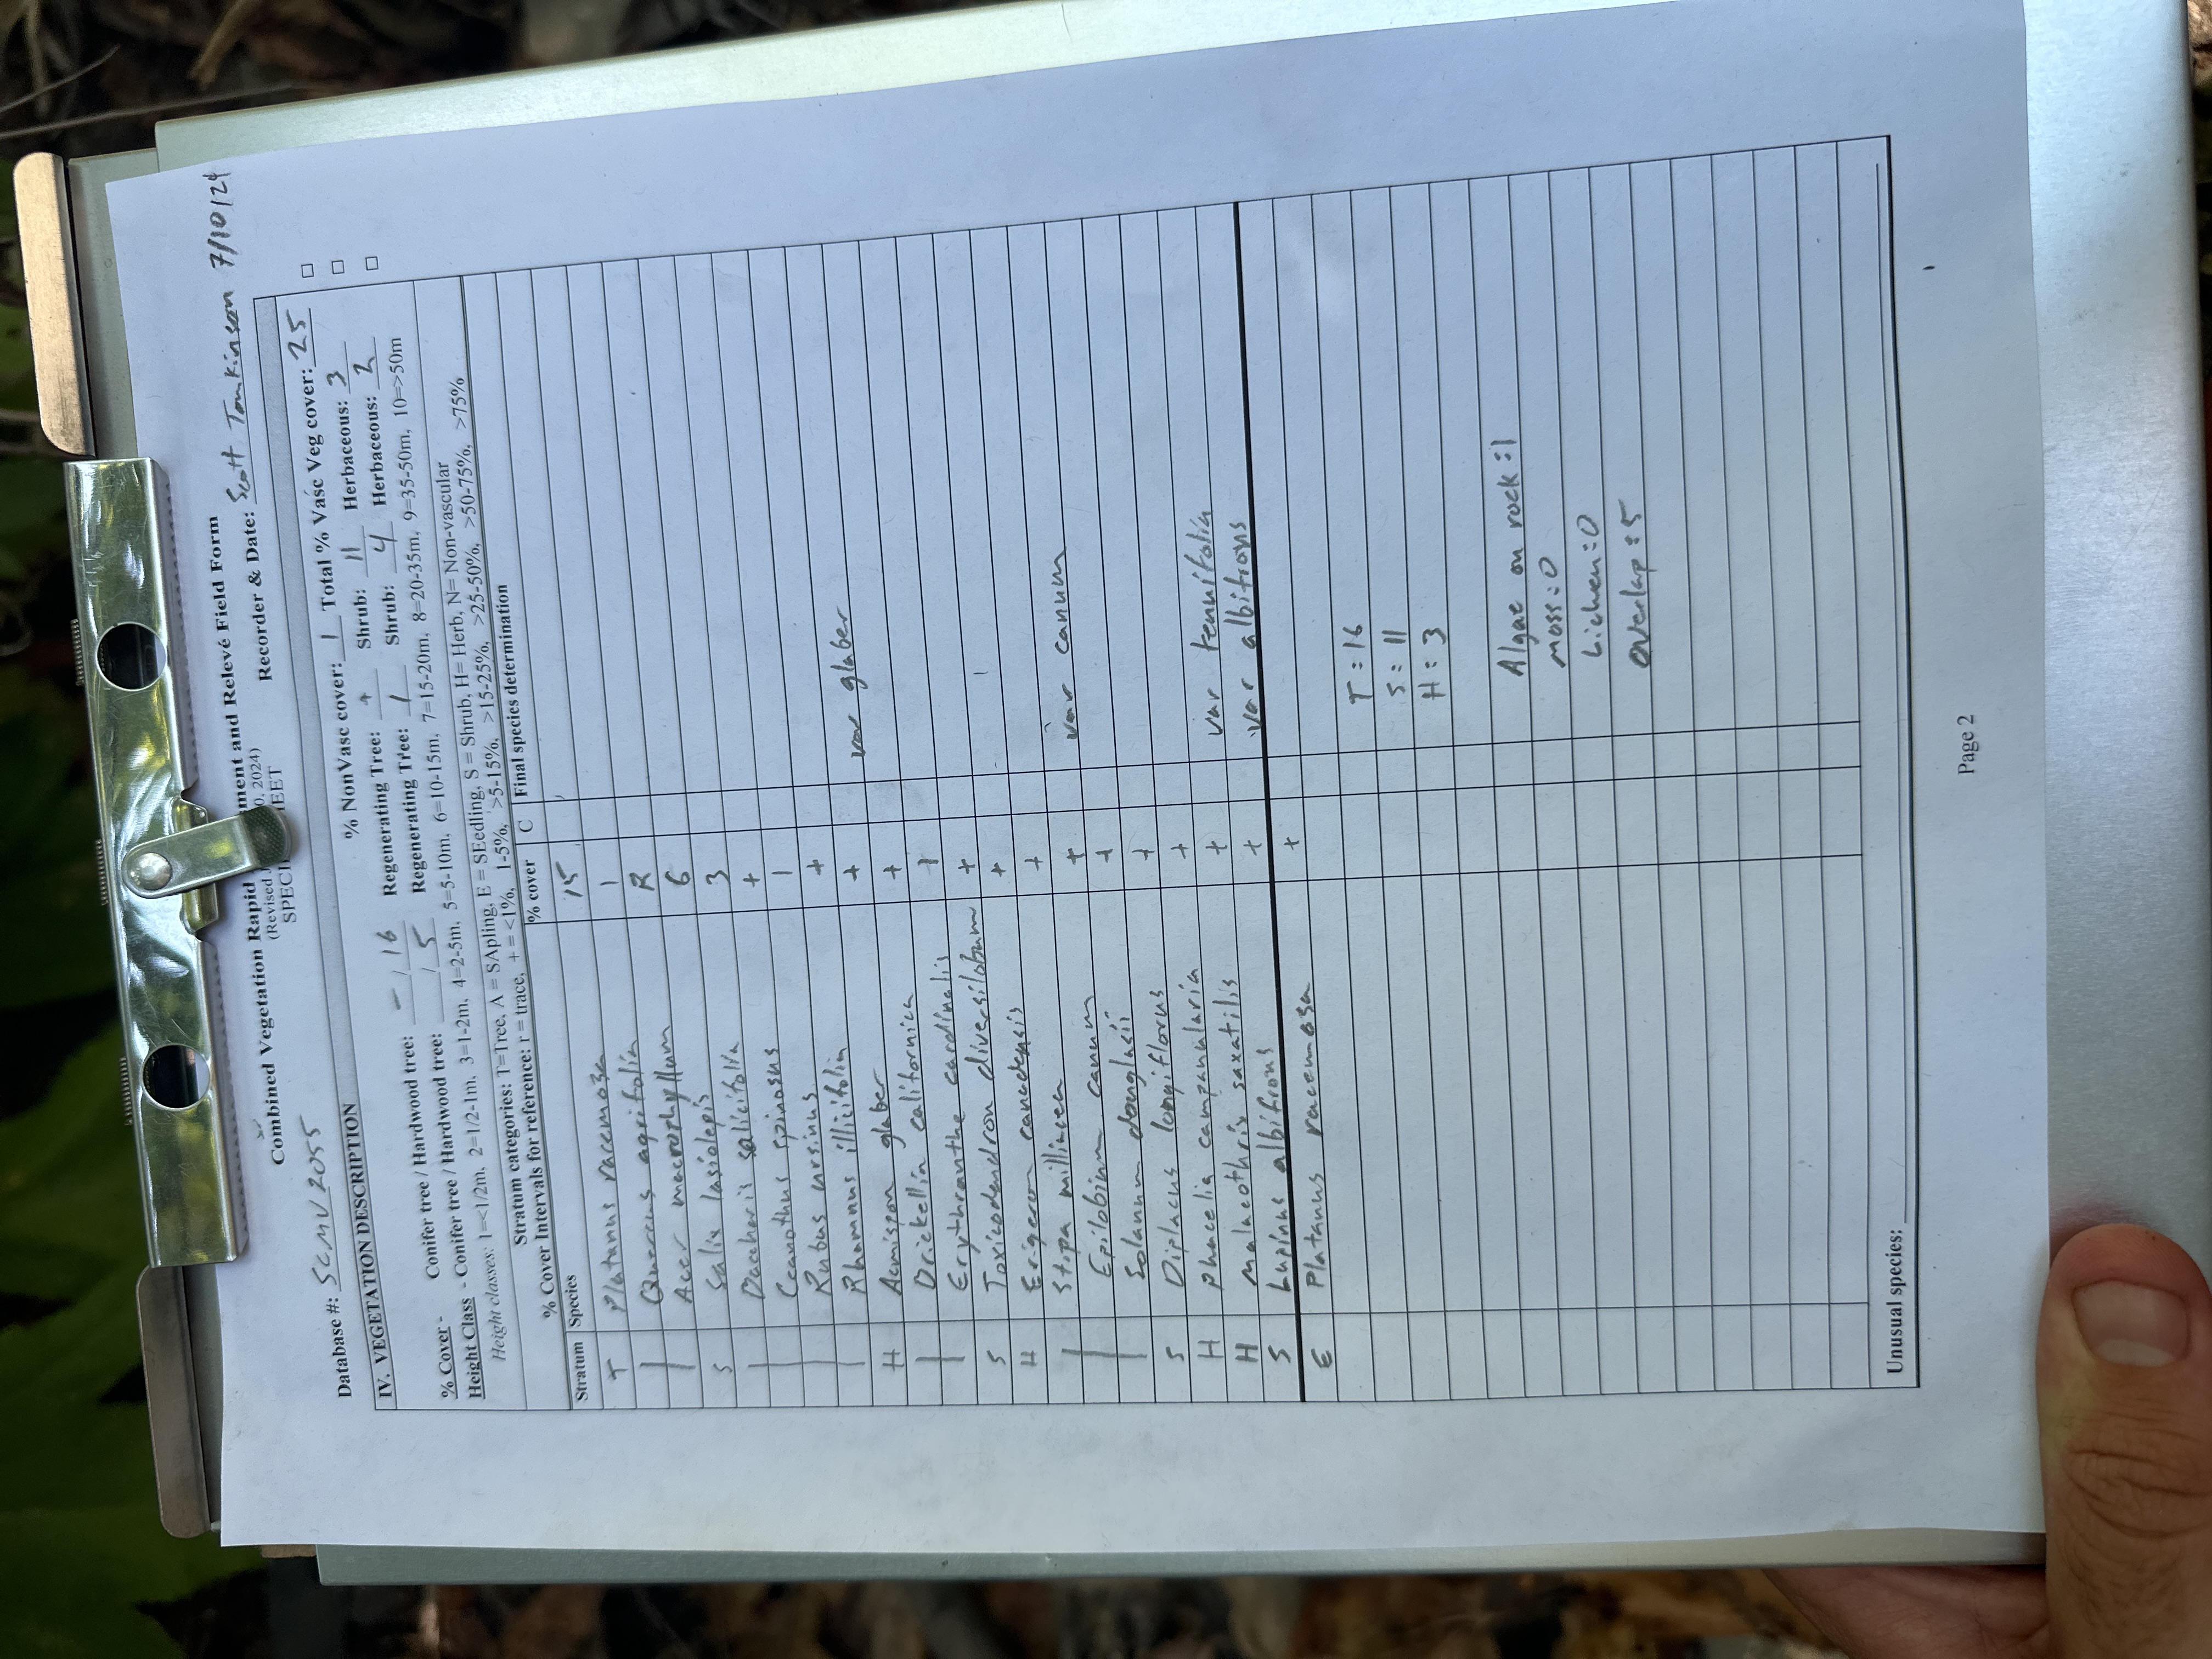 Combined Vegetation Rapid ment and Relevé Field Form
(Revised 0, 2024)
SPECI EET
Database #: SCMV2055 Recorder & Date: Scott Tomkinson 7/10/24
IV. VEGETATION DESCRIPTION
% NonVasc cover: 1 Total % Vasc Veg cover: 25
% Cover - Conifer tree / Hardwood tree: - / 16 Regenerating Tree: + Shrub: 11 Herbaceous: 3
Height Class - Conifer tree / Hardwood tree: / 5 Regenerating Tree: 1 Shrub: 4 Herbaceous: 2
Height classes: 1=<1/2m, 2=1/2-1m, 3=1-2m, 4=2-5m, 5=5-10m, 6=10-15m, 7=15-20m, 8=20-35m, 9=35-50m, 10=>50m
Stratum categories: T=Tree, A = SApling, E = SEedling, S = Shrub, H= Herb, N= Non-vascular
% Cover Intervals for reference: r = trace, + = <1%, 1-5%, >5-15%, >15-25%, >25-50%, >50-75%, >75%
Stratum Species % cover C Final species determination
T Platanus racemosa 15
| Quercus agrifolia 1
| Acer macrophyllum R
S Salix lasiolepis 6
| Baccharis salicifolia 3
| Ceanothus spinosus +
| Rubus ursinus 1
| Rhamnus illicifolia +
H Acmispon glaber + var glaber
| Brickellia californica +
| Erythranthe cardinalis +
S Toxicodendron diversilobum +
H Erigeron canadensis +
| Stipa milliacea +
| Epilobium canum + var canum
| Solanum douglasii +
S Diplacus longiflorus +
H Phacelia campanularia +
H Malacothrix saxatilis + var tenuifolia
S Lupinus albifrons + var albifrons
E Platanus racemosa +
T = 16
S = 11
H = 3
Algae on rock = 1
moss = 0
Lichen = 0
overlap = 5
Unusual species:
Page 2